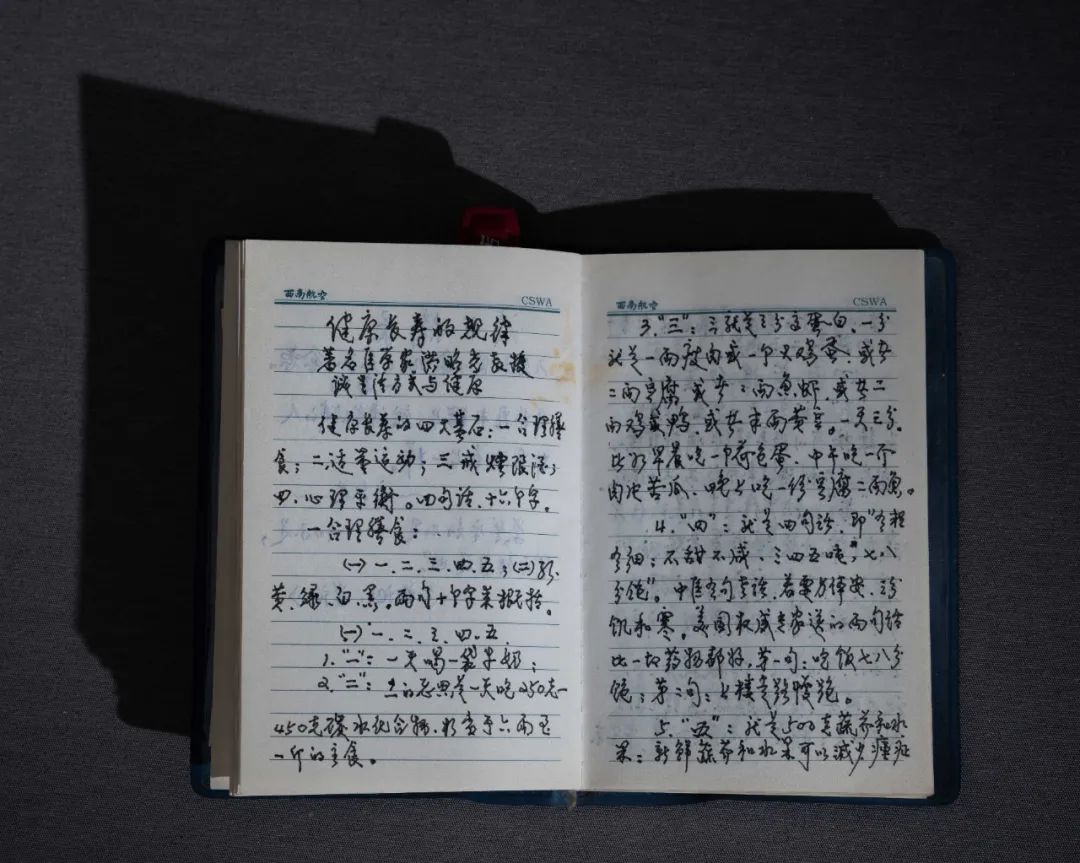 西南航空 CSWA
健康长寿的规律
著名医学家洪昭光教授
谈生活方式与健康
健康长寿的四大基石：一合理膳
食；二适量运动；三戒烟限酒；
四、心理平衡。四句话，十六个字。
一合理膳食：
㈠一、二、三、四、五；㈡红、
黄、绿、白、黑。两句十个字来概括。
㈠一、二、三、四、五、
1.“一”：一天喝一袋牛奶；
2.“二”：二的意思是一天吃250克—
450克碳水化合物，相当于六两至
一斤的主食。
西南航空 CSWA
3.“三”：三就是三分高蛋白，一分
就是一两瘦肉或一个大鸡蛋、或者
二两豆腐、或者二两鱼虾、或者二
两鸡或鸭、或者半两黄豆。一天三分。
比如早晨吃一个荷包蛋、中午吃一个
肉片苦瓜、晚上吃一份豆腐二两鱼。
4.“四”：就是四句话，即“有粗
有细；不甜不咸、三四五顿；七八
分饱”。中医有句老话，若要身体安，三分
饥和寒。美国权威专家送的两句话
比一切药物都好，第一句：吃饭七八分
饱；第二句：上楼走路慢跑。
5.“五”：就是500克蔬菜和水
果：新鲜蔬菜和水果可以减少癌症